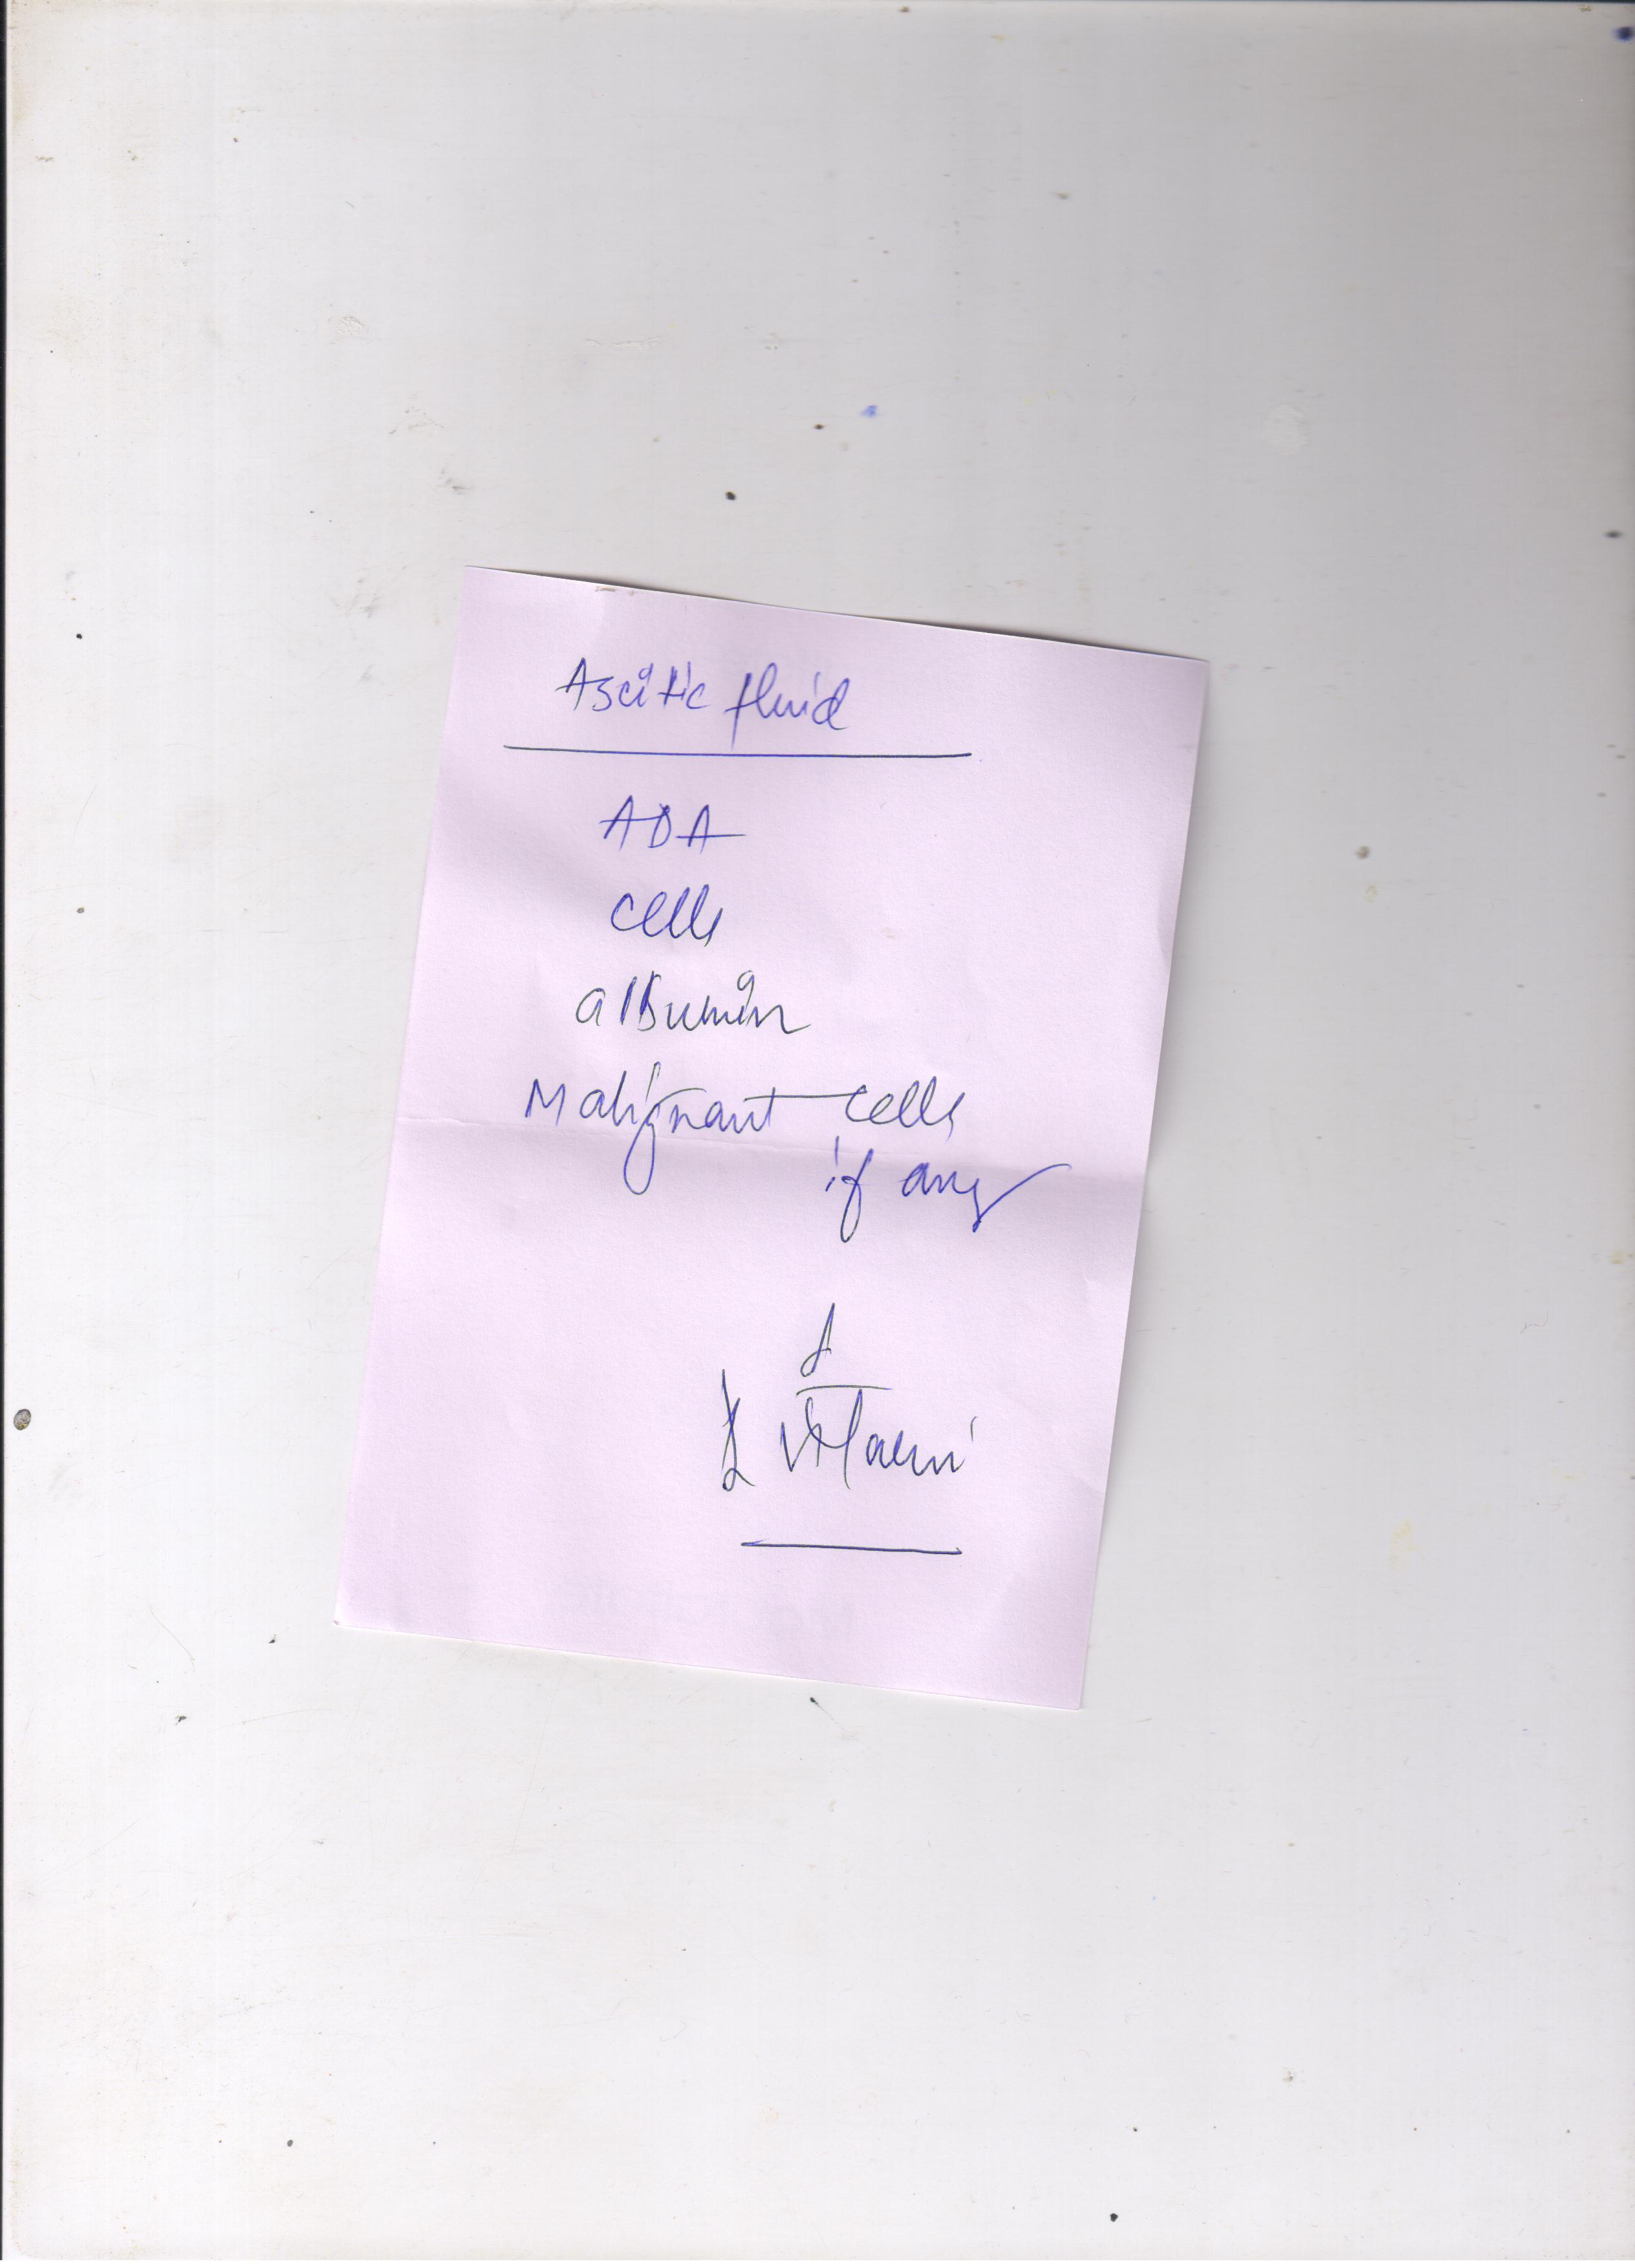 Ascitic fluid
ADA
cells
albumin
Malignant cells
if any